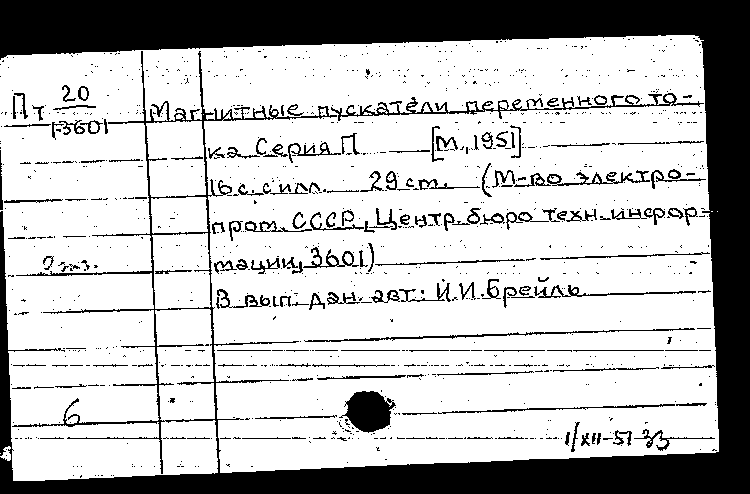 Пт 20
1-3601
Магнитные пускатели переменного то-
ка Серия П [М., 1951]
16 с. с илл. 29 см. (М-во электро-
пром. СССР, Центр. бюро техн. инфор-
мации, 3601)
2 экз.
В вып. дан. авт: И.И. Брейль
6
1/XII-51